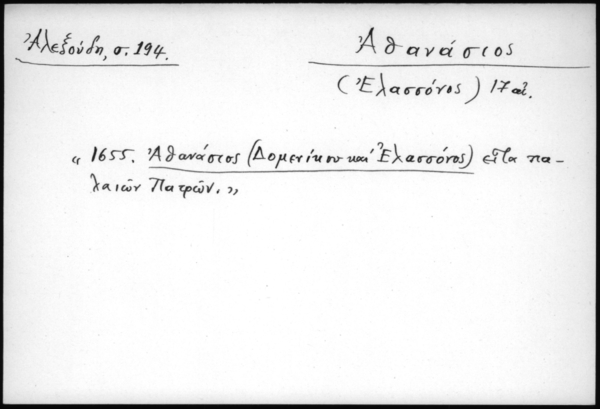 Ἀλεξούδη, σ. 194.
Ἀθανάσιος
(Ἐλασσόνος) 17 αἰ.
« 1655. Ἀθανάσιος (Δομενίκου καὶ Ἐλασσόνος) εἶτα πα-
λαιῶν Πατρῶν. »